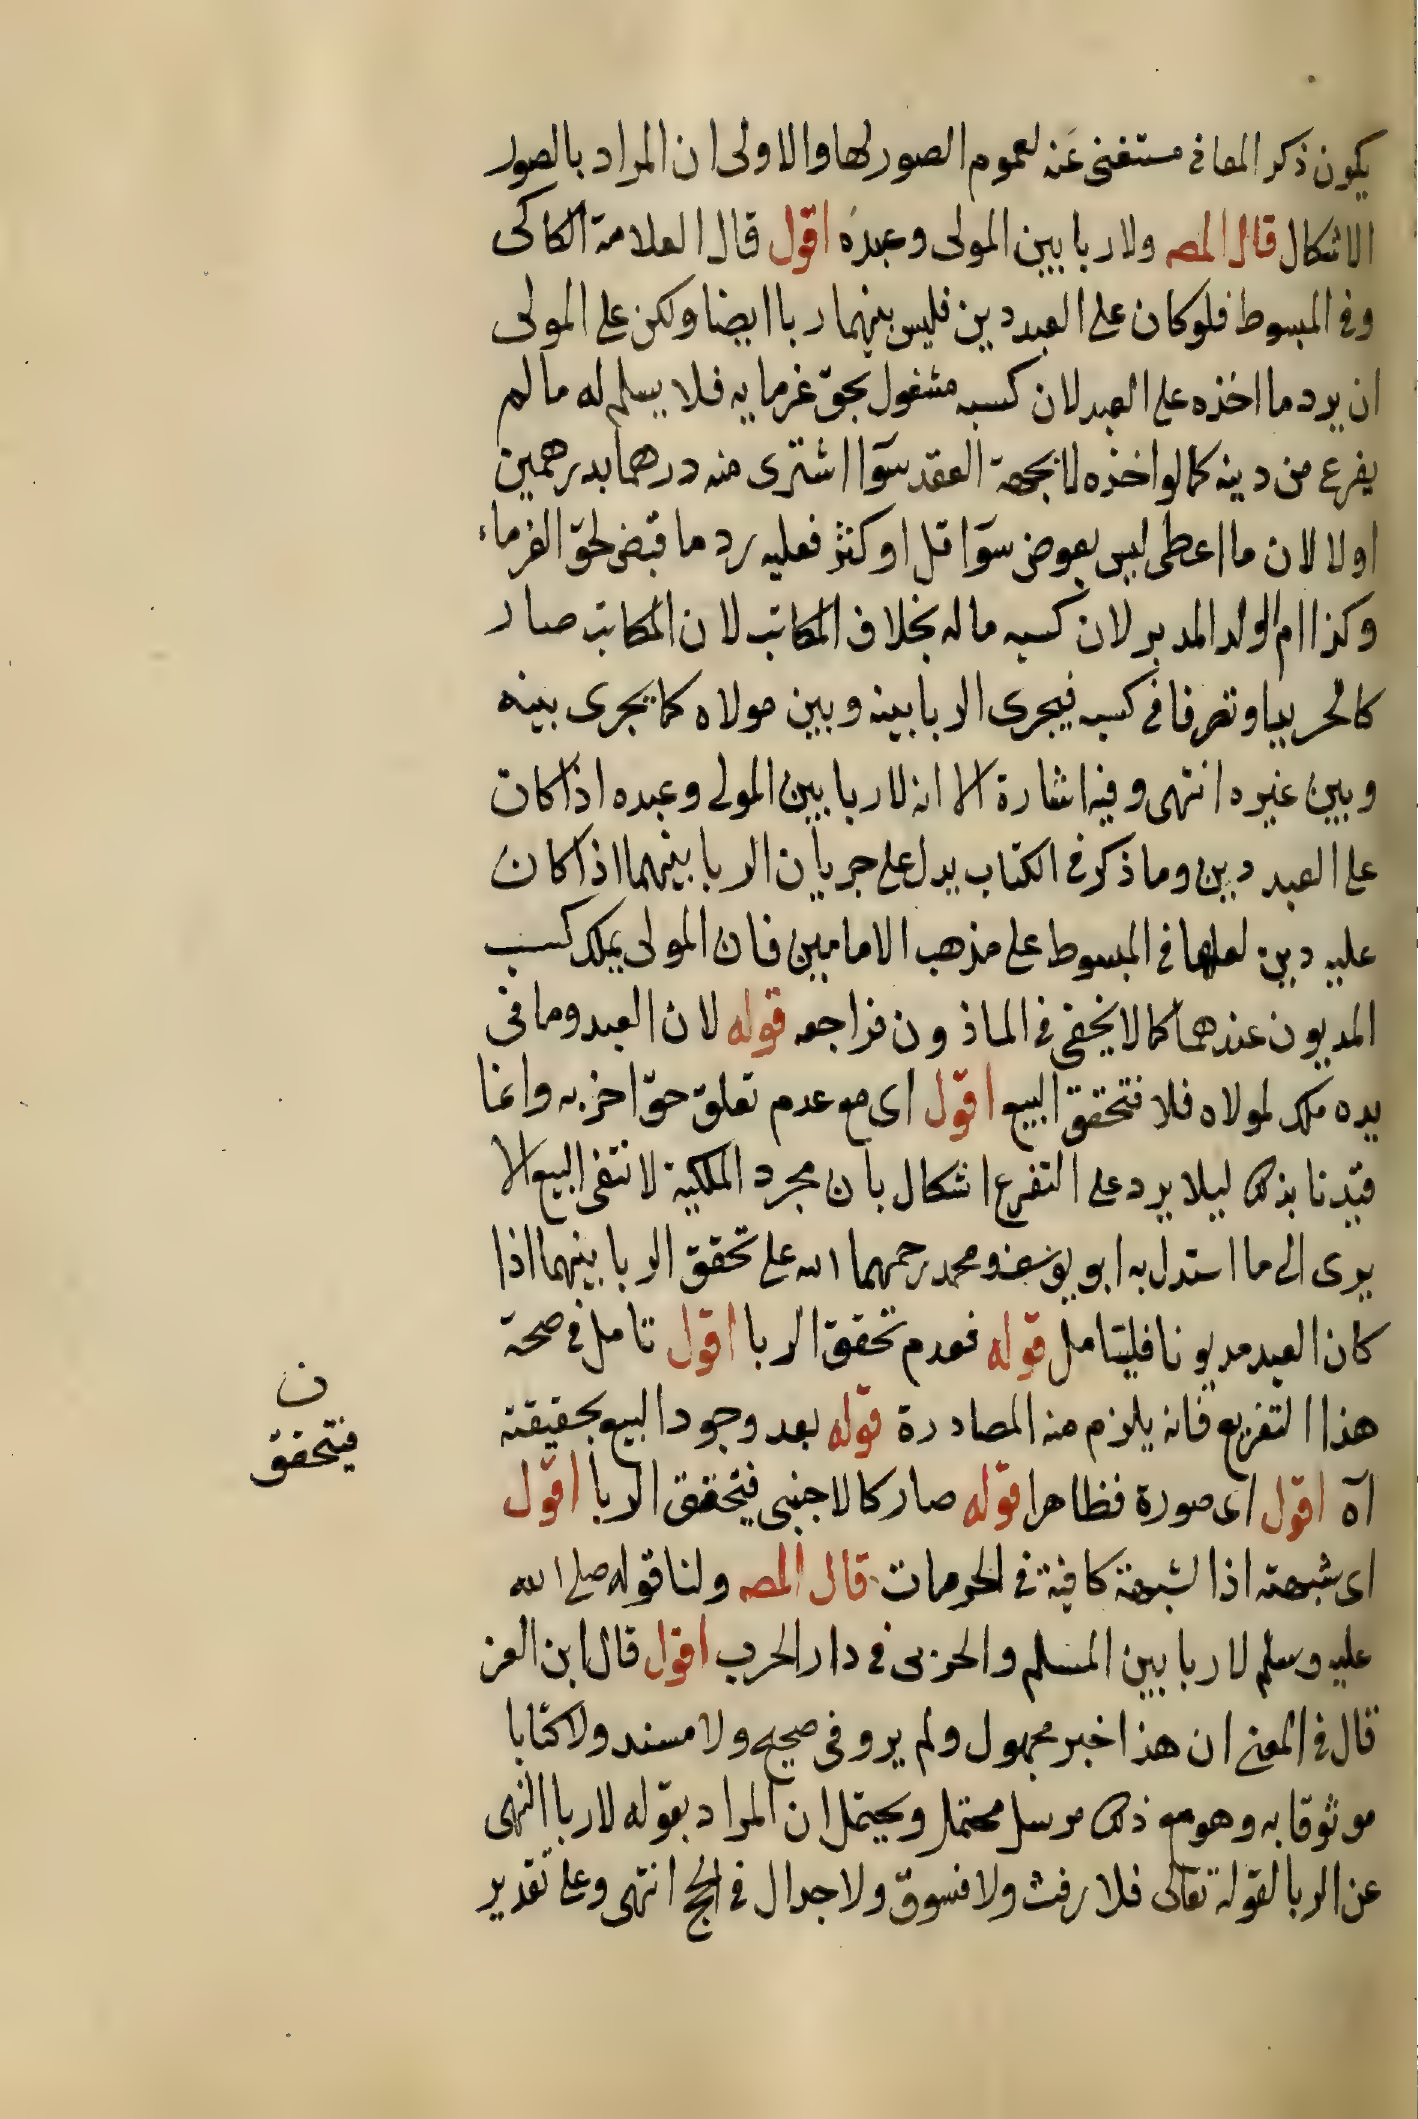 يكون ذكر المعانى مستغنى عَنه لعموم الصور لها والاولى ان المراد بالصور
الاشكال قال المصـ ولا ربا بين المولى وعبده اقول قال العلامة الكاكى
وفى المبسوط فلو كان على العبد دين فليس بينهما ربا ايضا ولكن على المولى
ان يرد ما اخذه على العبد لان كسبه مشغول بحق غرمايه فلا يسلم له مالم
يفرع من دينه كما لو اخذه لا بجهة العقد سوآ اشترى منه درهما بدرهمين
اولا لان ما اعطى ليس بعوض سوآ قل او كثر فعليه رد ما قبض لحق الغرماء
وكذا ام الولد المدبر لان كسبه ماله بخلاف المكاتب لان المكاتب صار
كالحر يدا وتصرفا فى كسبه فيجرى الربا بينه وبين مولاه كما يجرى بينه
وبين غيره انتهى وفيه اشارة الا انه لا ربا بين المولى وعبده اذا كان
على العبد دين وما ذكر فى الكتاب يدل على جريان الربا بينهما اذا كان
عليه دين لعلها فى المبسوط على مذهب الامامين فان المولى يملك كسب
المديون عندهما كما لا يخفى فى الماذون فراجعه قوله لان العبد وما فى
يده ملك لمولاه فلا فتحقق البيع اقول اى مع عدم تعلق حق اخر به وانما
قيدنا بذلك ليلا يرد على التفرع اشكال بان مجرد الملكية لا نتفى البيع الا
يرى الى ما استدل به ابو يوسف ومحمد رحمهما الله على تحقق الربا بينهما اذا
كان العبد مديونا فليتامل قوله فعدم تحقق الربا اقول تامل فى صحة
هذا التفريع فانه يلزم منه المصادرة قوله بعد وجود البيع بحقيقته
آه اقول اى صورة فظاهرا قوله صار كالاجنبى فيتحقق الربا اقول
اى شبهته اذا لشبهة كافية فى الحرمات قال المصـ ولنا قوله صلى الله
عليه وسلم لا ربا بين المسلم والحربى فى دار الحرب اقول قال ابن العز
قال فى المغنى ان هذا خبر مجهول ولم يرو فى صحيح ولا مسند ولا كتابا
موثوقا به وهو مع ذلك مرسل محتمل ويحتمل ان المراد بقوله لا ربا النهى
عن الربا لقوله تعالى فلا رفث ولا فسوق ولا جدال فى الحج انتهى وعلى تقدير
ن
فيتحقق